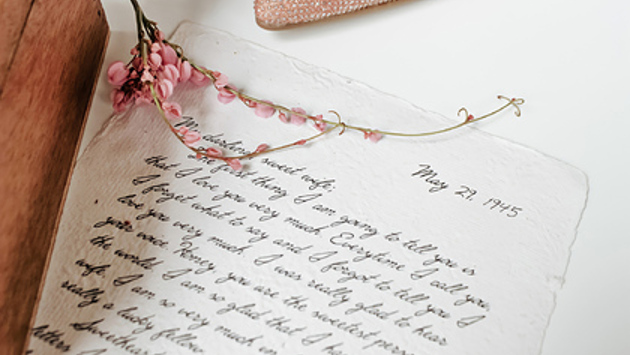 May 29, 1945
My darling sweet wife:
The first thing I am going to tell you is
that I love you very much. Everytime I call you
I forget what to say and I forget to tell you I
love you very much. I was really glad to hear
your voice Honey, you are the sweetest
wife in the world. I am so glad that I
I am so very much in
really a lucky fellow
letters Sweetheart